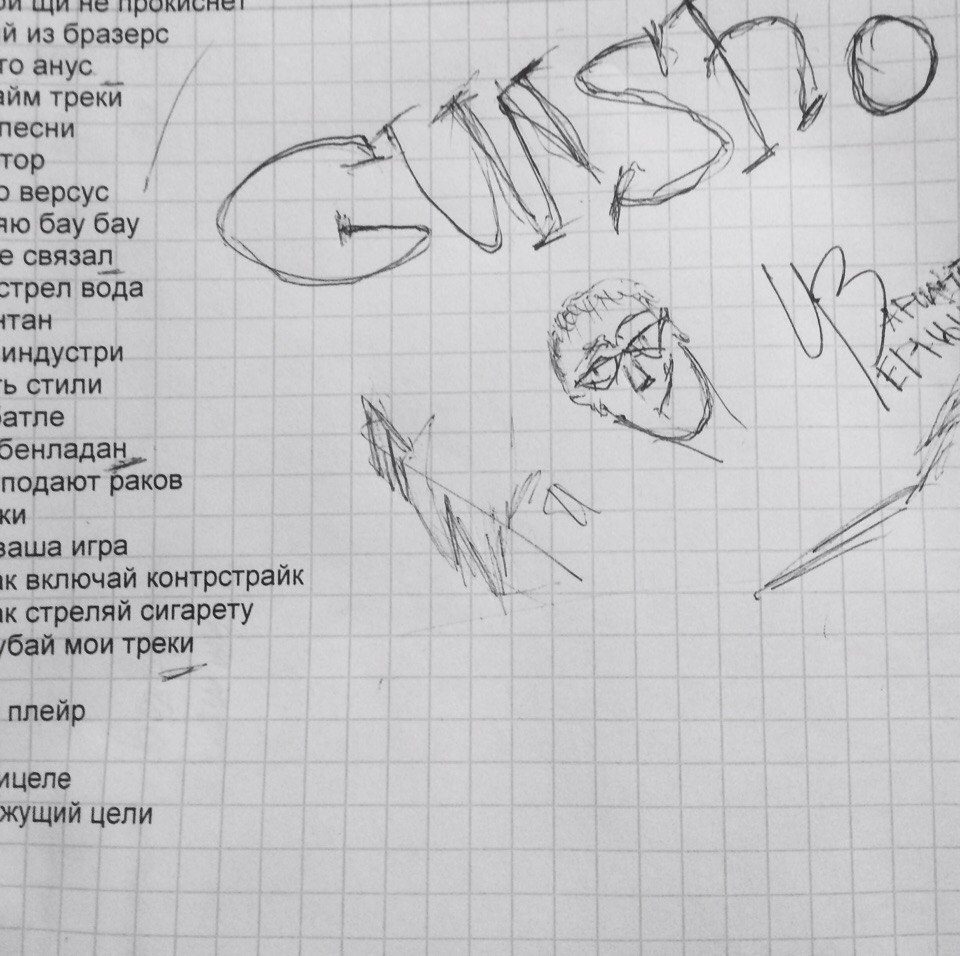 ой щи не прокиснет
й из бразерс
го анус
айм треки
песни
тор
о версус
яю бау бау
е связал
стрел вода
нтан
индустри
ть стили
батле
бенладан
подают раков
ки
ваша игра
ак включай контрстрайк
ак стреляй сигарету
убай мои треки
плейр
ицеле
жущий цели
Gunsho
ИЗ